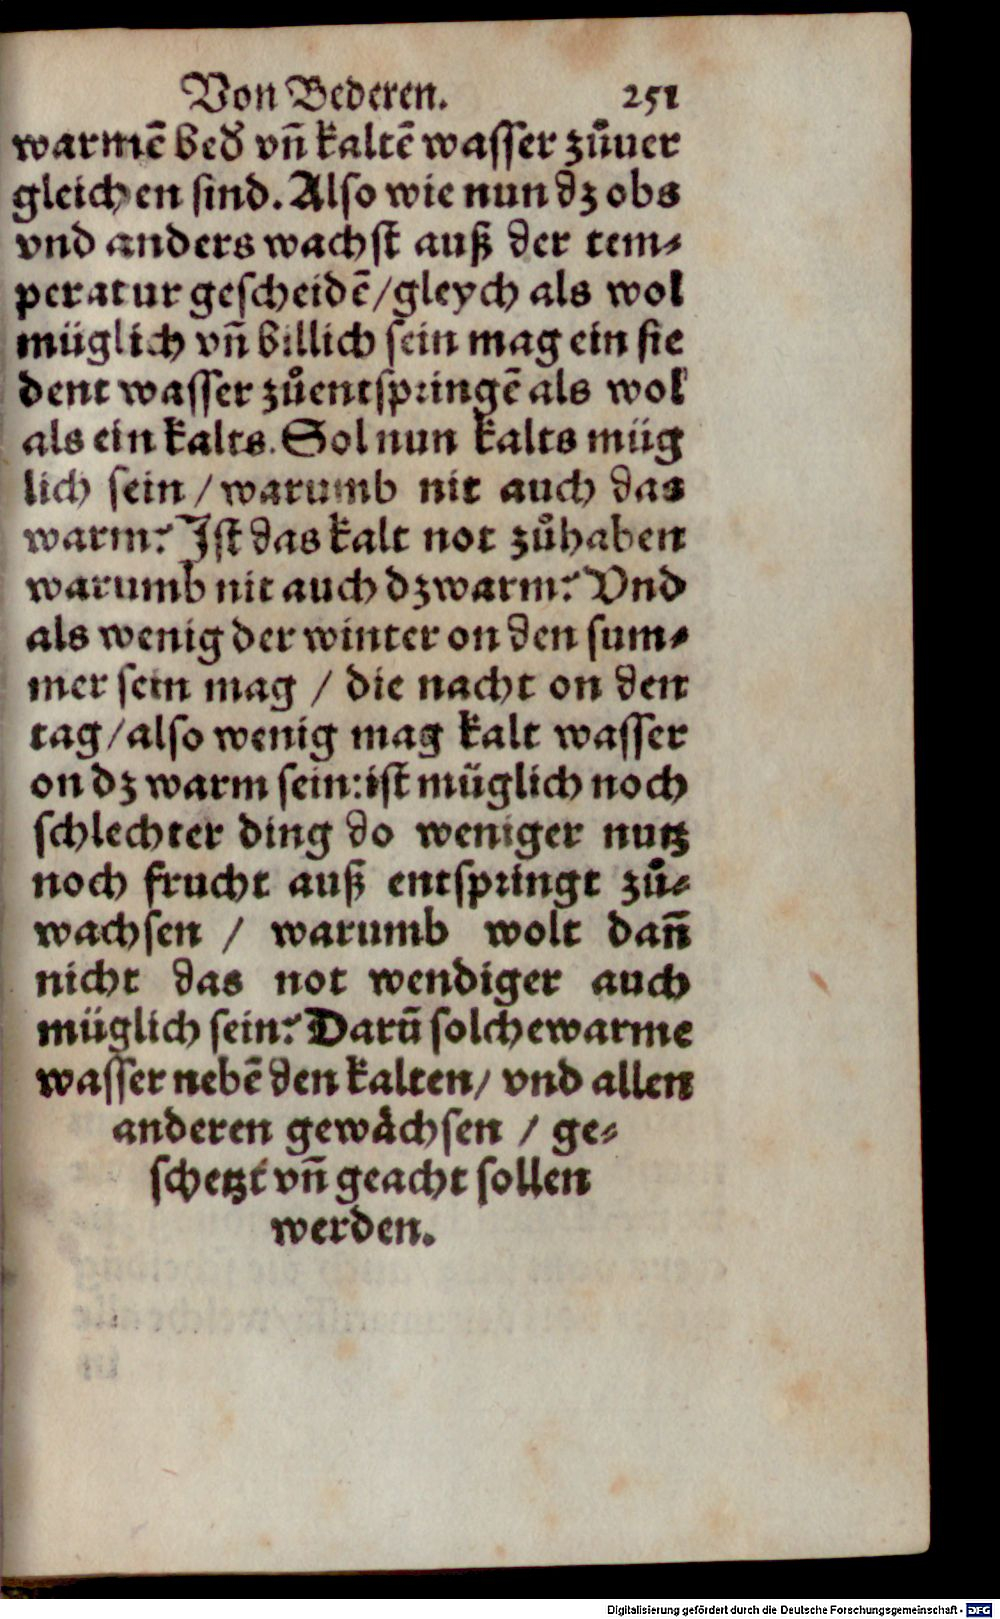 Von Bederen. 251
warmē bed vñ kaltē wasser zůuer
gleichen sind. Also wie nun dz obs
vnd anders wachst auß der tem⸗
peratur gescheidē/gleych als wol
müglich vñ billich sein mag ein sie
dent wasser zůentspringē als wol
als ein kalts. Sol nun kalts müg
lich sein / warumb nit auch das
warm? Ist das kalt not zůhaben
warumb nit auch dz warm? Vnd
als wenig der winter on den sum⸗
mer sein mag / die nacht on den
tag/also wenig mag kalt wasser
on dz warm sein: ist müglich noch
schlechter ding do weniger nutz
noch frucht auß entspringt zů⸗
wachsen / warumb wolt dañ
nicht das not wendiger auch
müglich sein? Darū solche warme
wasser nebē den kalten/ vnd allen
anderen gewächsen / ge⸗
schetzt vñ geacht sollen
werden.
Digitalisierung gefördert durch die Deutsche Forschungsgemeinschaft - DFG